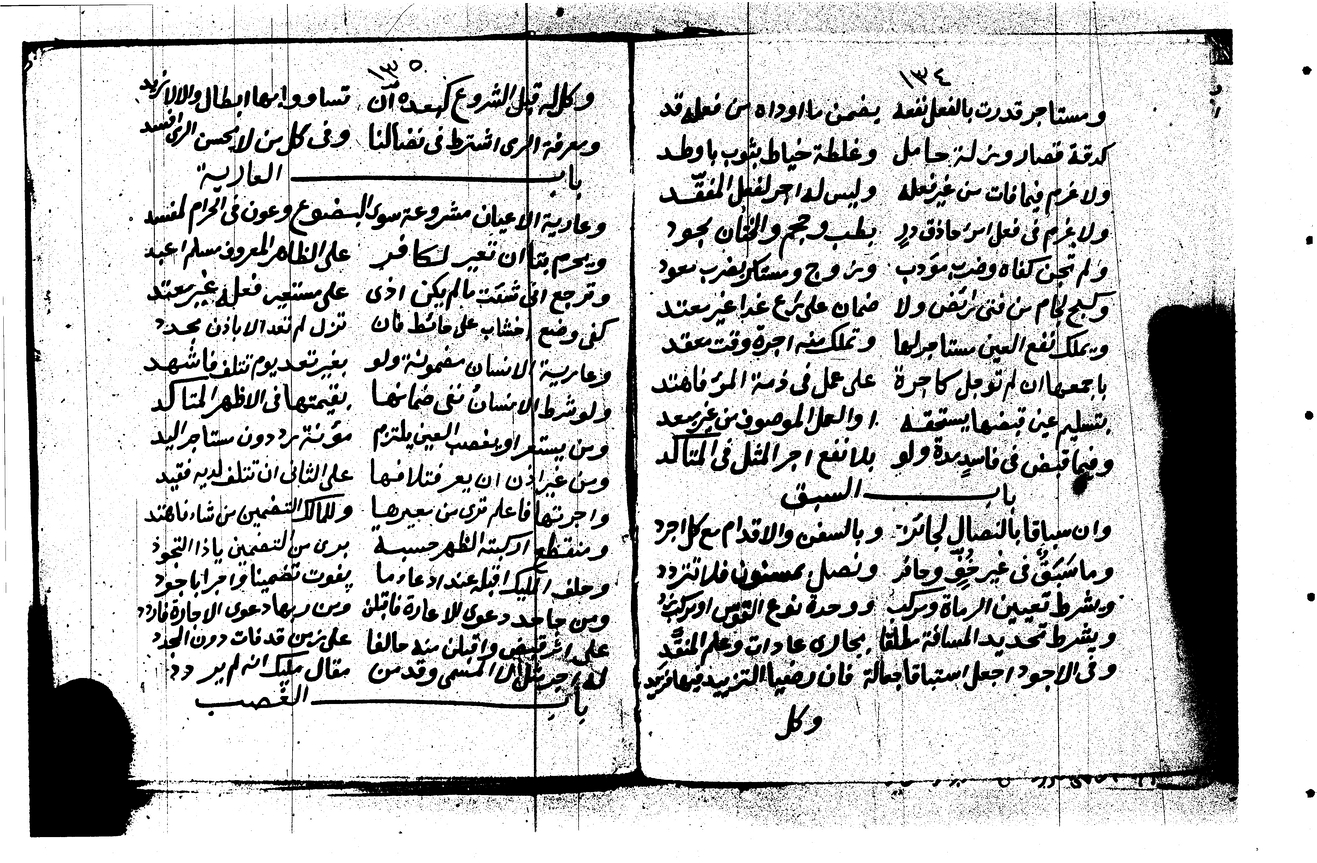 ١٣٤
ومستاجر قدرت بالفعل نفعه يضمن ما اوداه من فعله قد
كدقة قصار وزلة حامل وغلطة خياط بثوب باوطد
ولا غرم فيما فات من غير فعله وليس له اجر لفعل المفقد
ولا غرم في فعل امرء حاذق در بطب وحجم والختان بجود
ولم تجن كفاه وضرب مؤدب وزوج ومستاكر بضرب معود
وكبح لجام من فتى رائض ولا ضمان على راع غدا غير معتد
ويملك نفع العين مستاجر لها وتملك منه اجرة وقت معقد
باجمعها ان لم توجل كاجرة على عمل في ذمة المرء فاهتد
بتسليم عين قبضها يستحقه او العمل الموصوف من غير مبعد
وفيما قبض في فاسد مدة ولو بلا نفع اجر المثل في المتاكد
باب السبق
وان سباقا بالنصال لجائز وبالسفن والاقدام مع كل اجرد
وما سَبَقٌ في غير خف وحافر ونصل بمسنون فلا تتردد
ويشرط تعيين الرماة ومركب ووحدة نوع القوس او مركب
ويشرط تحديد المسافة مطلقا بجاري عادات وعلم المنقد
وفي الاجود اجعل استباقا جعالة فان رضيا التزييد فيها فزيد
وكل
١٣٥
وكل له قبل الشروع كبعده ان تساووا بها ابطال والا لازيد
ومعرفة الرمي اشترط في نضالنا وفي كل من لا يحسن الرمي افسد
باب العارية
وعارية الاعيان مشروعة سوى البضوع وعون في الحرام لمفسد
ويحرم بتا ان تعير لكافر على الظاهر المعروف مسلم اعبد
وترجع انى شئت ما لم يكن اذى على مستعير فعله غير معتد
كفى وضع اخشاب على حائط فان تزل لم تعد الا باذن مجدد
وعارية الانسان مضمونة ولو بغير تعد يوم تتلف فاشهد
ولو شرط الانسان نفي ضمانها بقيمتها في الاظهر المتاكد
ومن يستعر او يغصب العين يلتزم مؤنة رد دون مستاجر اليد
ومن غير اذن ان يعر فتلافها على الثاني ان تتلف لديه فقيد
واجرتها فاعلم ترى من معيرها وللمالك التضمين من شاء فاهتد
ومنقطع اركبته الظهر حسبة برى من التضمين ياذا التجود
وحلف المليك اقبله عند ادعاء ما يفوت تضمينا واجرا باجود
ومن جاحد دعوى الاعارة فاقبلن ومن ربها دعوى الاجارة فاردد
على اثر قبض واقبلن منه حالفا على زمن قد فات دون المجدد
له اجر مثل لا المسمى وقدمن مقال مليك انه لم يردد
باب الغصب